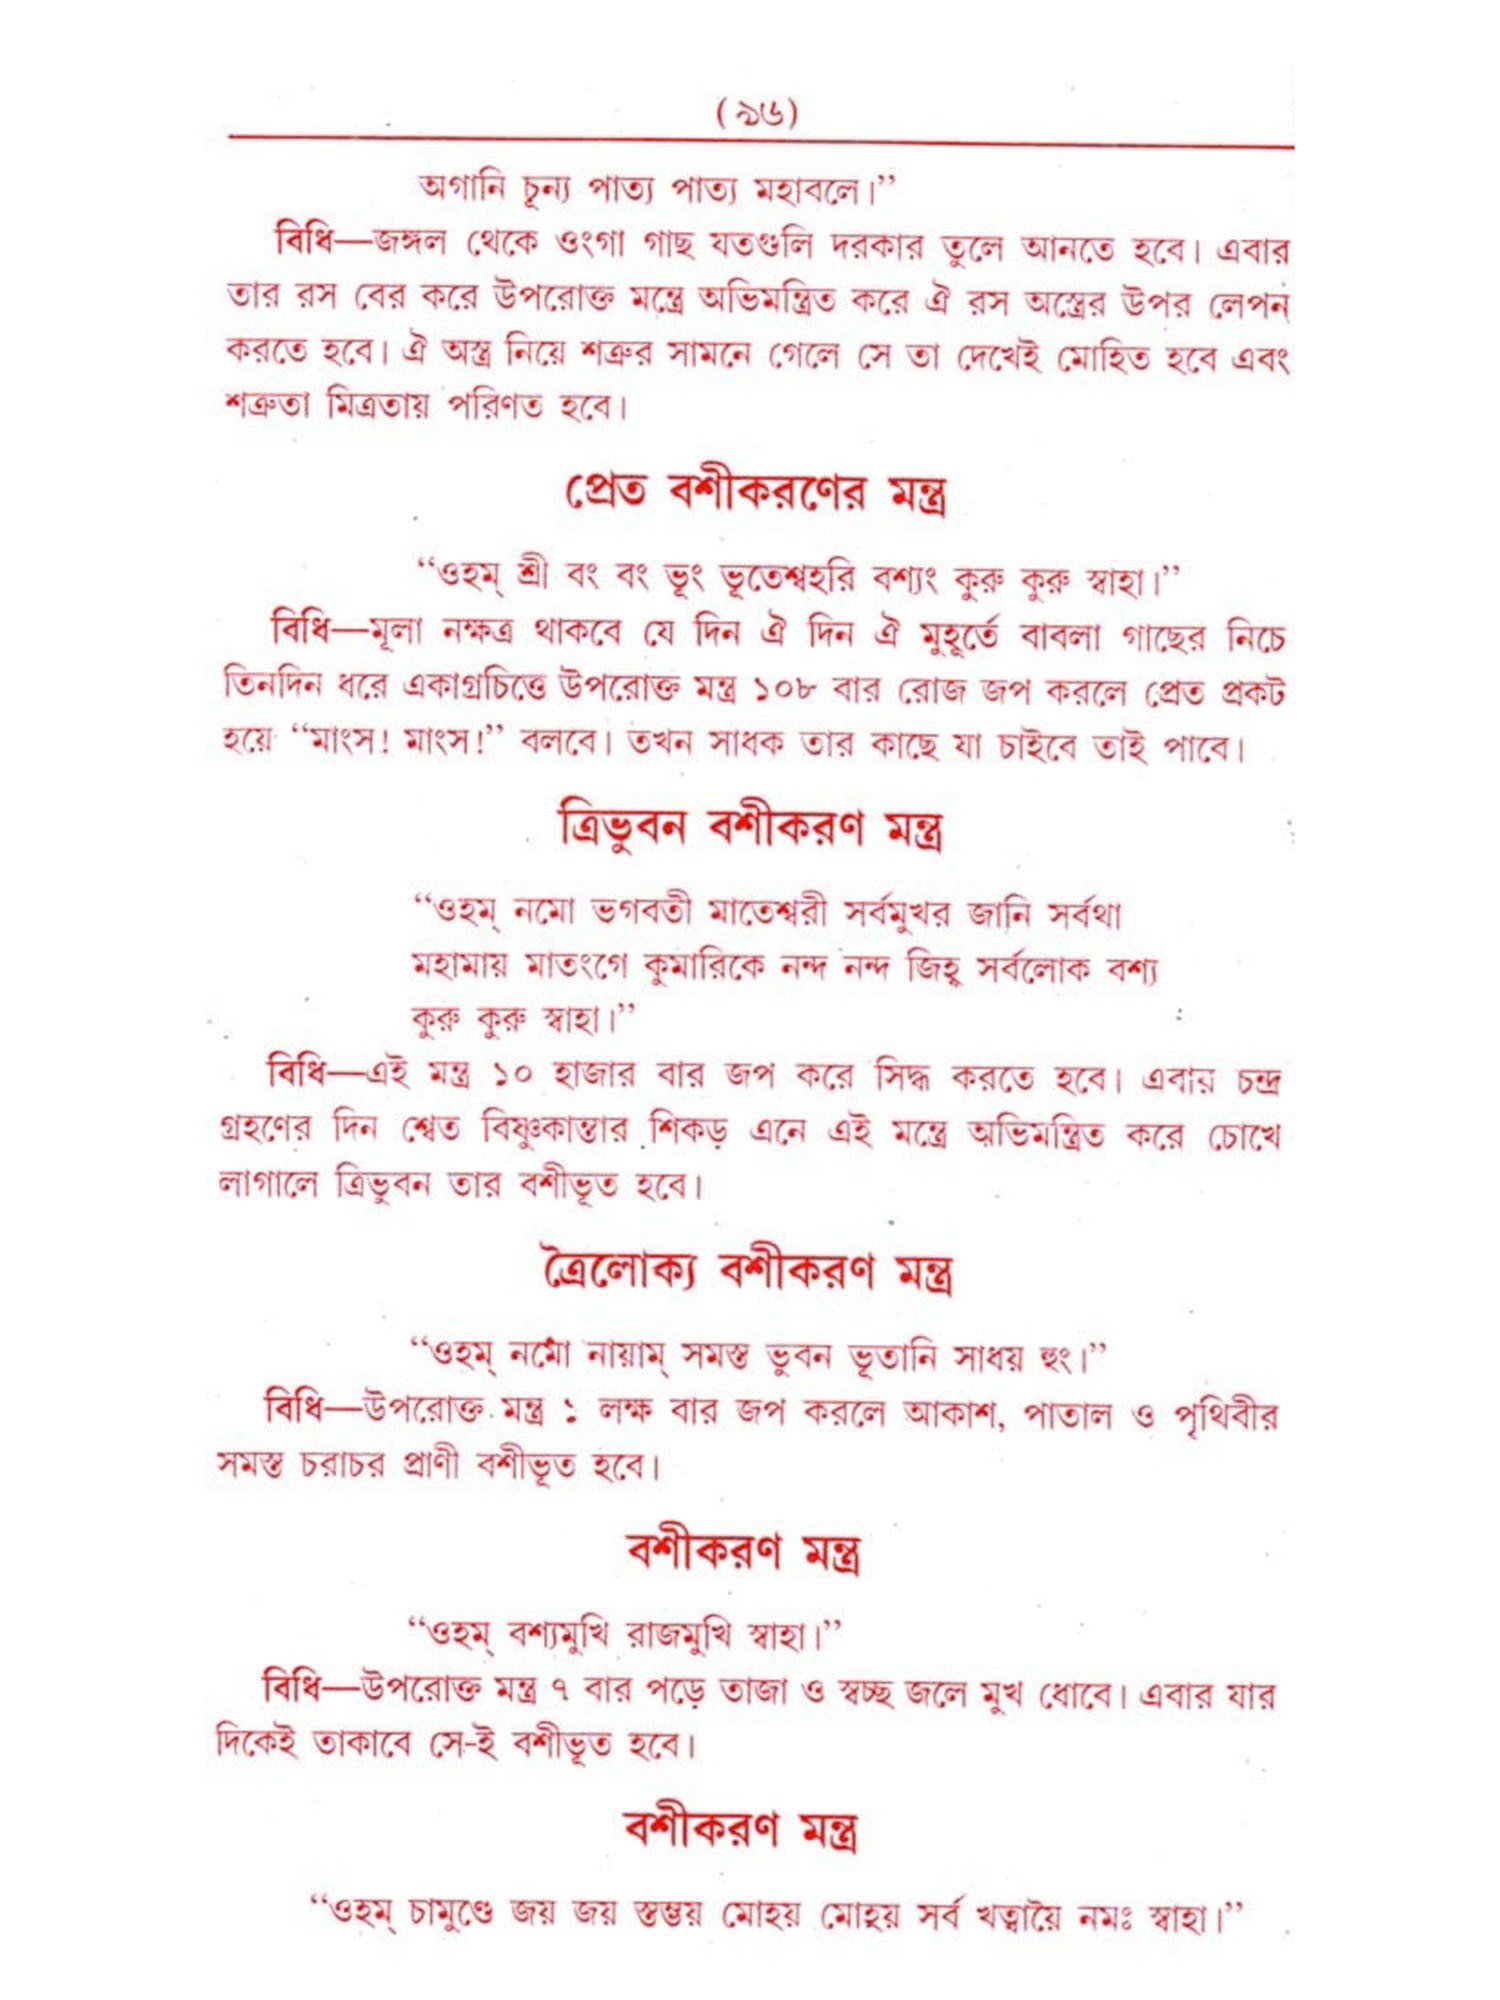 (৯৬)
অগানি চূন্য পাত্য পাত্য মহাবলে।”
বিধি—জঙ্গল থেকে ওংগা গাছ যতগুলি দরকার তুলে আনতে হবে। এবার
তার রস বের করে উপরোক্ত মন্ত্রে অভিমন্ত্রিত করে ঐ রস অস্ত্রের উপর লেপন
করতে হবে। ঐ অস্ত্র নিয়ে শত্রুর সামনে গেলে সে তা দেখেই মোহিত হবে এবং
শত্রুতা মিত্রতায় পরিণত হবে।
প্রেত বশীকরণের মন্ত্র
“ওহম্ শ্রী বং বং ভূং ভূতেশ্বহরি বশ্যং কুরু কুরু স্বাহা।”
বিধি—মূলা নক্ষত্র থাকবে যে দিন ঐ দিন ঐ মুহূর্তে বাবলা গাছের নিচে
তিনদিন ধরে একাগ্রচিত্তে উপরোক্ত মন্ত্র ১০৮ বার রোজ জপ করলে প্রেত প্রকট
হয়ে “মাংস! মাংস!” বলবে। তখন সাধক তার কাছে যা চাইবে তাই পাবে।
ত্রিভুবন বশীকরণ মন্ত্র
“ওহম্ নমো ভগবতী মাতেশ্বরী সর্বমুখর জানি সর্বথা
মহামায় মাতংগে কুমারিকে নন্দ নন্দ জিহ্ব সর্বলোক বশ্য
কুরু কুরু স্বাহা।”
বিধি—এই মন্ত্র ১০ হাজার বার জপ করে সিদ্ধ করতে হবে। এবার চন্দ্র
গ্রহণের দিন শ্বেত বিষ্ণুকান্তার শিকড় এনে এই মন্ত্রে অভিমন্ত্রিত করে চোখে
লাগালে ত্রিভুবন তার বশীভূত হবে।
ত্রৈলোক্য বশীকরণ মন্ত্র
“ওহম্ নমো নায়াম্ সমস্ত ভুবন ভূতানি সাধয় হুং।”
বিধি—উপরোক্ত মন্ত্র ১ লক্ষ বার জপ করলে আকাশ, পাতাল ও পৃথিবীর
সমস্ত চরাচর প্রাণী বশীভূত হবে।
বশীকরণ মন্ত্র
“ওহম্ বশ্যমুখি রাজমুখি স্বাহা।”
বিধি—উপরোক্ত মন্ত্র ৭ বার পড়ে তাজা ও স্বচ্ছ জলে মুখ ধোবে। এবার যার
দিকেই তাকাবে সে-ই বশীভূত হবে।
বশীকরণ মন্ত্র
“ওহম্ চামুণ্ডে জয় জয় স্তম্ভয় মোহয় মোহয় সর্ব খত্বায়ৈ নমঃ স্বাহা।”